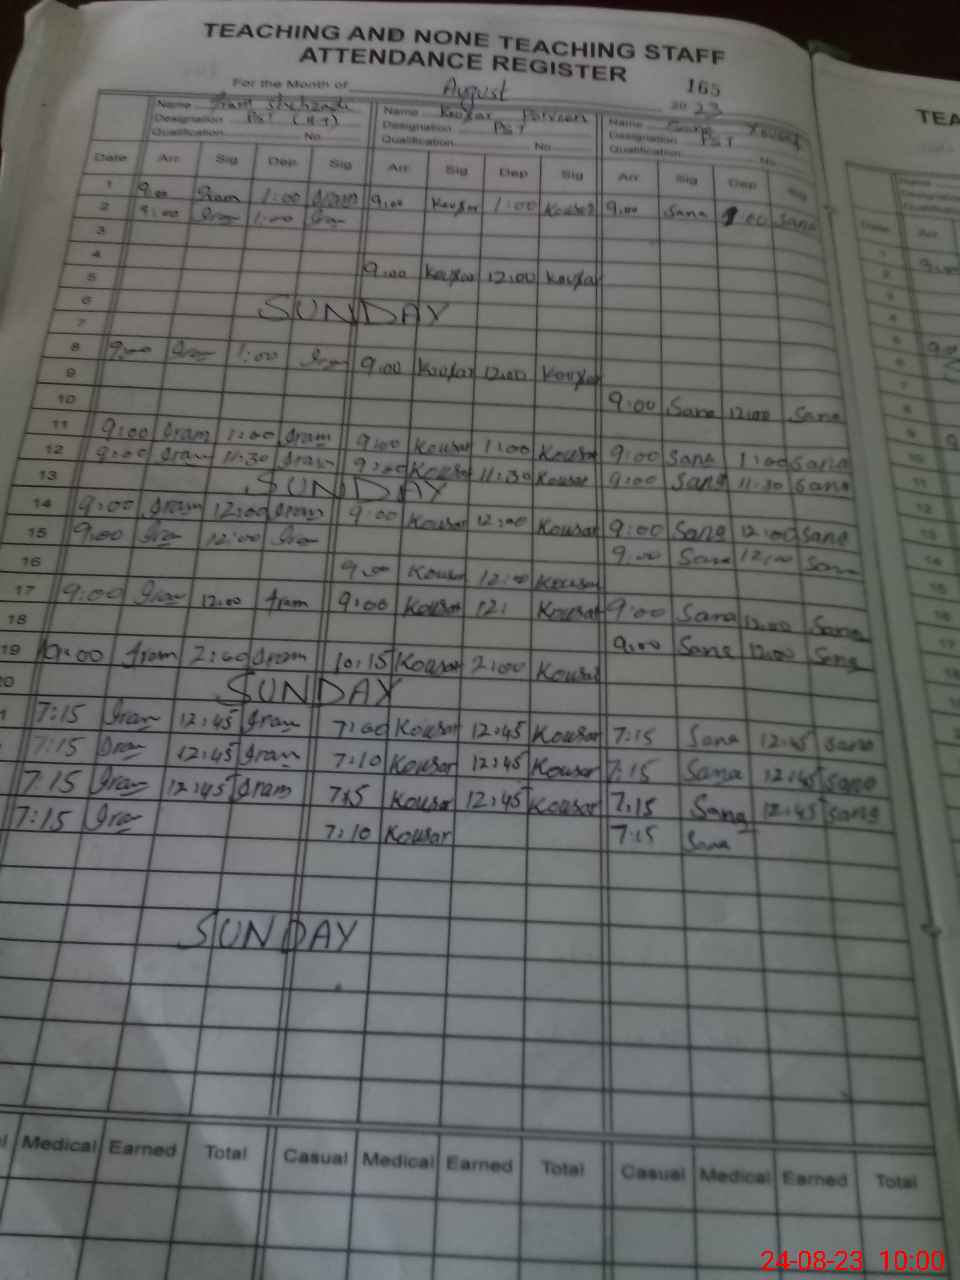 TEACHING AND NONE TEACHING STAFF
ATTENDANCE REGISTER
165
For the Month of August 2023
Name Name Kousar Parveen Name
Designation PST Designation PST Designation PST
Qualification No. Qualification No. Qualification No.
Date Arr. Sig Dep. Sig Arr. Sig Dep Sig Arr. Sig Dep Sig
1 9:00 Iram 1:00 Iram 9:00 Kousar 1:00 Kousar 9:00 Sana 1:00 Sana
2 9:00 Iram 1:00 Iram
3
4
5 9:00 Kousar 12:00 Kousar
6 SUNDAY
7
8 9:00 Iram 1:00 Iram 9:00 Kousar 12:00 Kousar
9
10 9:00 Sana 12:00 Sana
11 9:00 Iram 1:00 Iram 9:00 Kousar 1:00 Kousar 9:00 Sana 1:00 Sana
12 9:00 Iram 11:30 Iram 9:00 Kousar 11:30 Kousar 9:00 Sana 11:30 Sana
13 SUNDAY
14 9:00 Iram 12:00 Iram 9:00 Kousar 12:00 Kousar 9:00 Sana 12:00 Sana
15 9:00 Iram 12:00 Iram 9:00 Sana 12:00 Sana
16 9:00 Kousar 12:00 Kousar
17 9:00 Iram 12:00 Iram 9:00 Kousar 12: Kousar 9:00 Sana 12:00 Sana
18 9:00 Sana 12:00 Sana
19 9:00 Iram 2:00 Iram 10:15 Kousar 2:00 Kousar
0 SUNDAY
1 7:15 Iram 12:45 Iram 7:00 Kousar 12:45 Kousar 7:15 Sana 12:45 Sana
7:15 Iram 12:45 Iram 7:10 Kousar 12:45 Kousar 7:15 Sana 12:45 Sana
7:15 Iram 12:45 Iram 7:15 Kousar 12:45 Kousar 7:15 Sana 12:45 Sana
7:15 Iram 7:10 Kousar 7:15 Sana
SUNDAY
Medical Earned Total Casual Medical Earned Total Casual Medical Earned Total
TEA
24-08-23 10:00